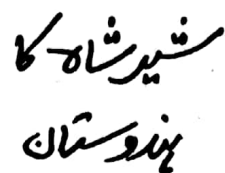 شیر شاہ کا
ہندوستان